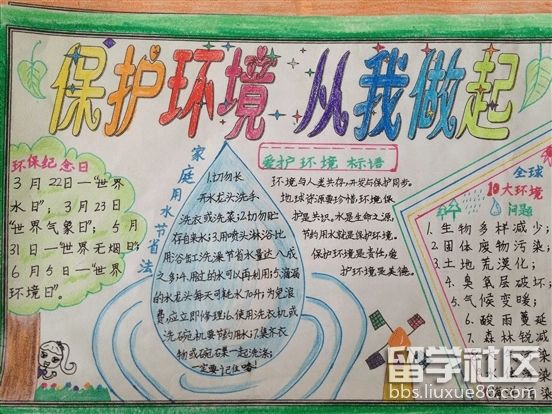 保护环境 从我做起
环保纪念日
3月22日—“世界
水日”；3月23日
“世界气象日”；5月
31日—“世界无烟日”；
6月5日—“世界
环境日”。
家庭用水节省法
1.切勿长
开水龙头洗手、
洗衣或洗菜；2.切勿贮
存自来水；3.用喷头淋浴比
用浴缸工洗澡节省水量达八成
之多；4.用过的水可以再利用；5.滴漏
的水龙头每天可耗水70升；为免浪
费，应立即修理；6.使用洗衣机或
洗碗机要节约用水；7.集齐衣
物或碗碟一起洗涤；
一定要记住喽！
爱护环境 标语
环境与人类共存，开发与保护同步。
地球资源要珍惜，环境保
护是共识。水是生命之源，
节约用水就是保护环境。
保护环境是责任，爱
护环境是美德。
全球
10大环境
问题
1.生物多样减少；
2.固体废物污染；
3.土地荒漠化；
4.臭氧层破坏；
5.气候变暖；
6.酸雨蔓延
7.森林锐减
留学社区
bbs.liuxue86.com